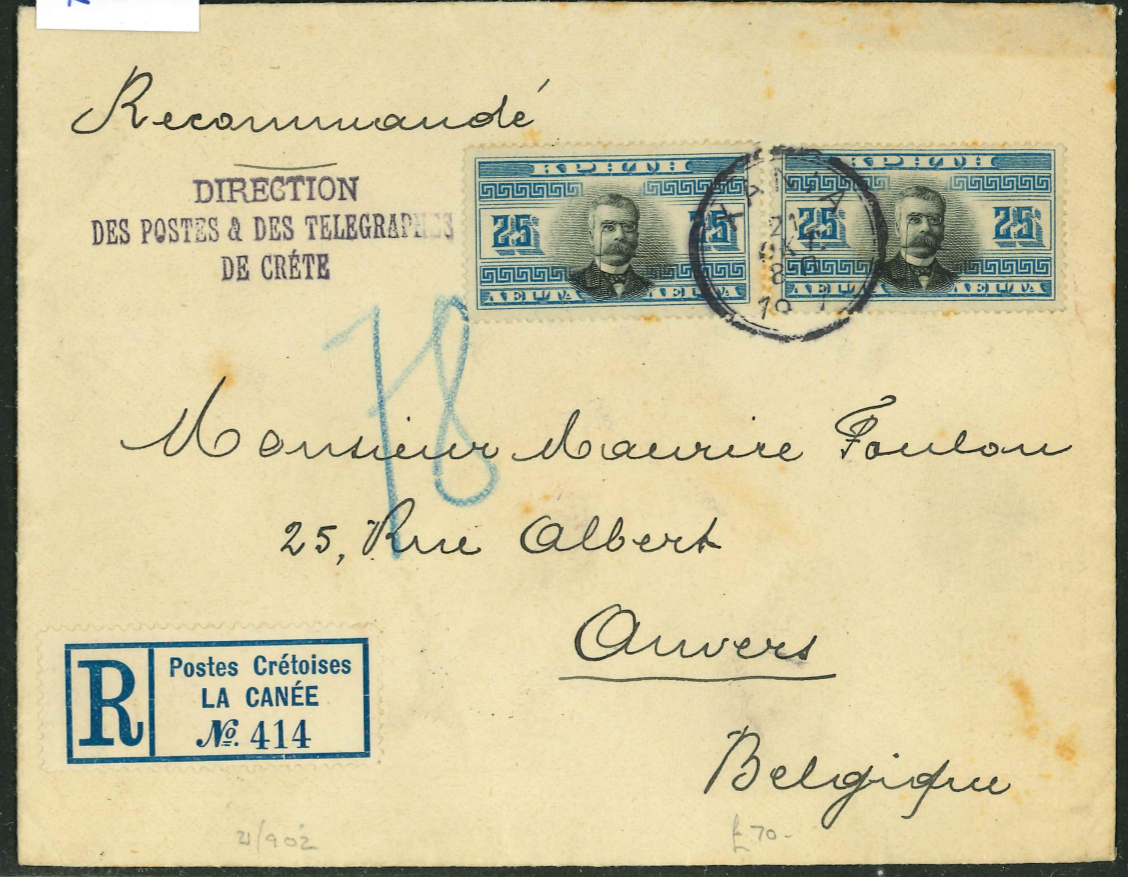 Recommandé
DIRECTION
DES POSTES & DES TELEGRAPHES
DE CRÉTE
ΚΡΗΤΗ
25 25
ΛΕΠΤΑ ΛΕΠΤΑ
ΚΡΗΤΗ
25 25
ΛΕΠΤΑ ΛΕΠΤΑ
ΧΑΝΙΑ
21
ΟΚΤ.
78
Monsieur Maurice Foulon
25, Rue Albert
Anvers
Belgique
R
Postes Crétoises
LA CANÉE
No. 414
21/902
£70-